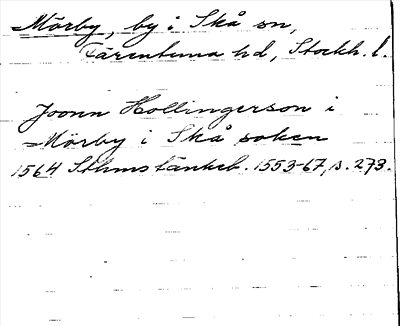 Mörby, by i Skå sn,
Färentuna hd, Stockh. l.
Joonn Hollingerson i
Mörby i Skå soken
1564 Sthms tänkeb. 1553-67, s. 273.